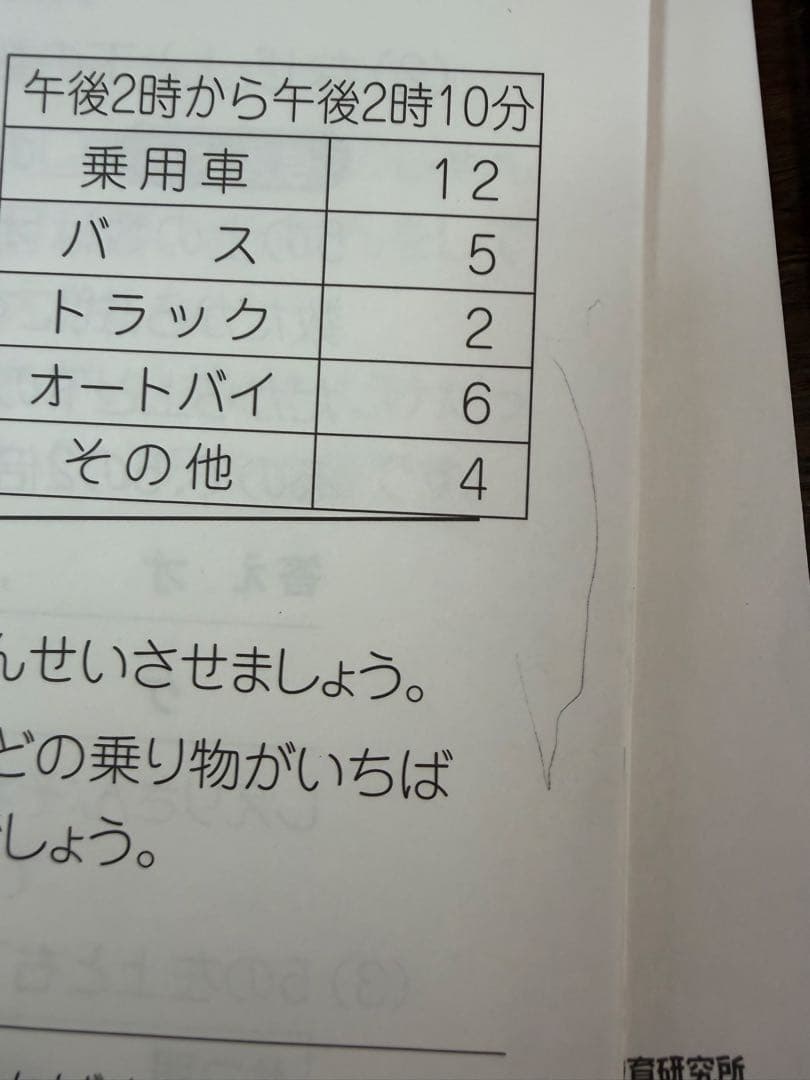 午後2時から午後2時10分
乗用車 12
バス 5
トラック 2
オートバイ 6
その他 4
んせいさせましょう。
どの乗り物がいちば
しょう。
育研究所